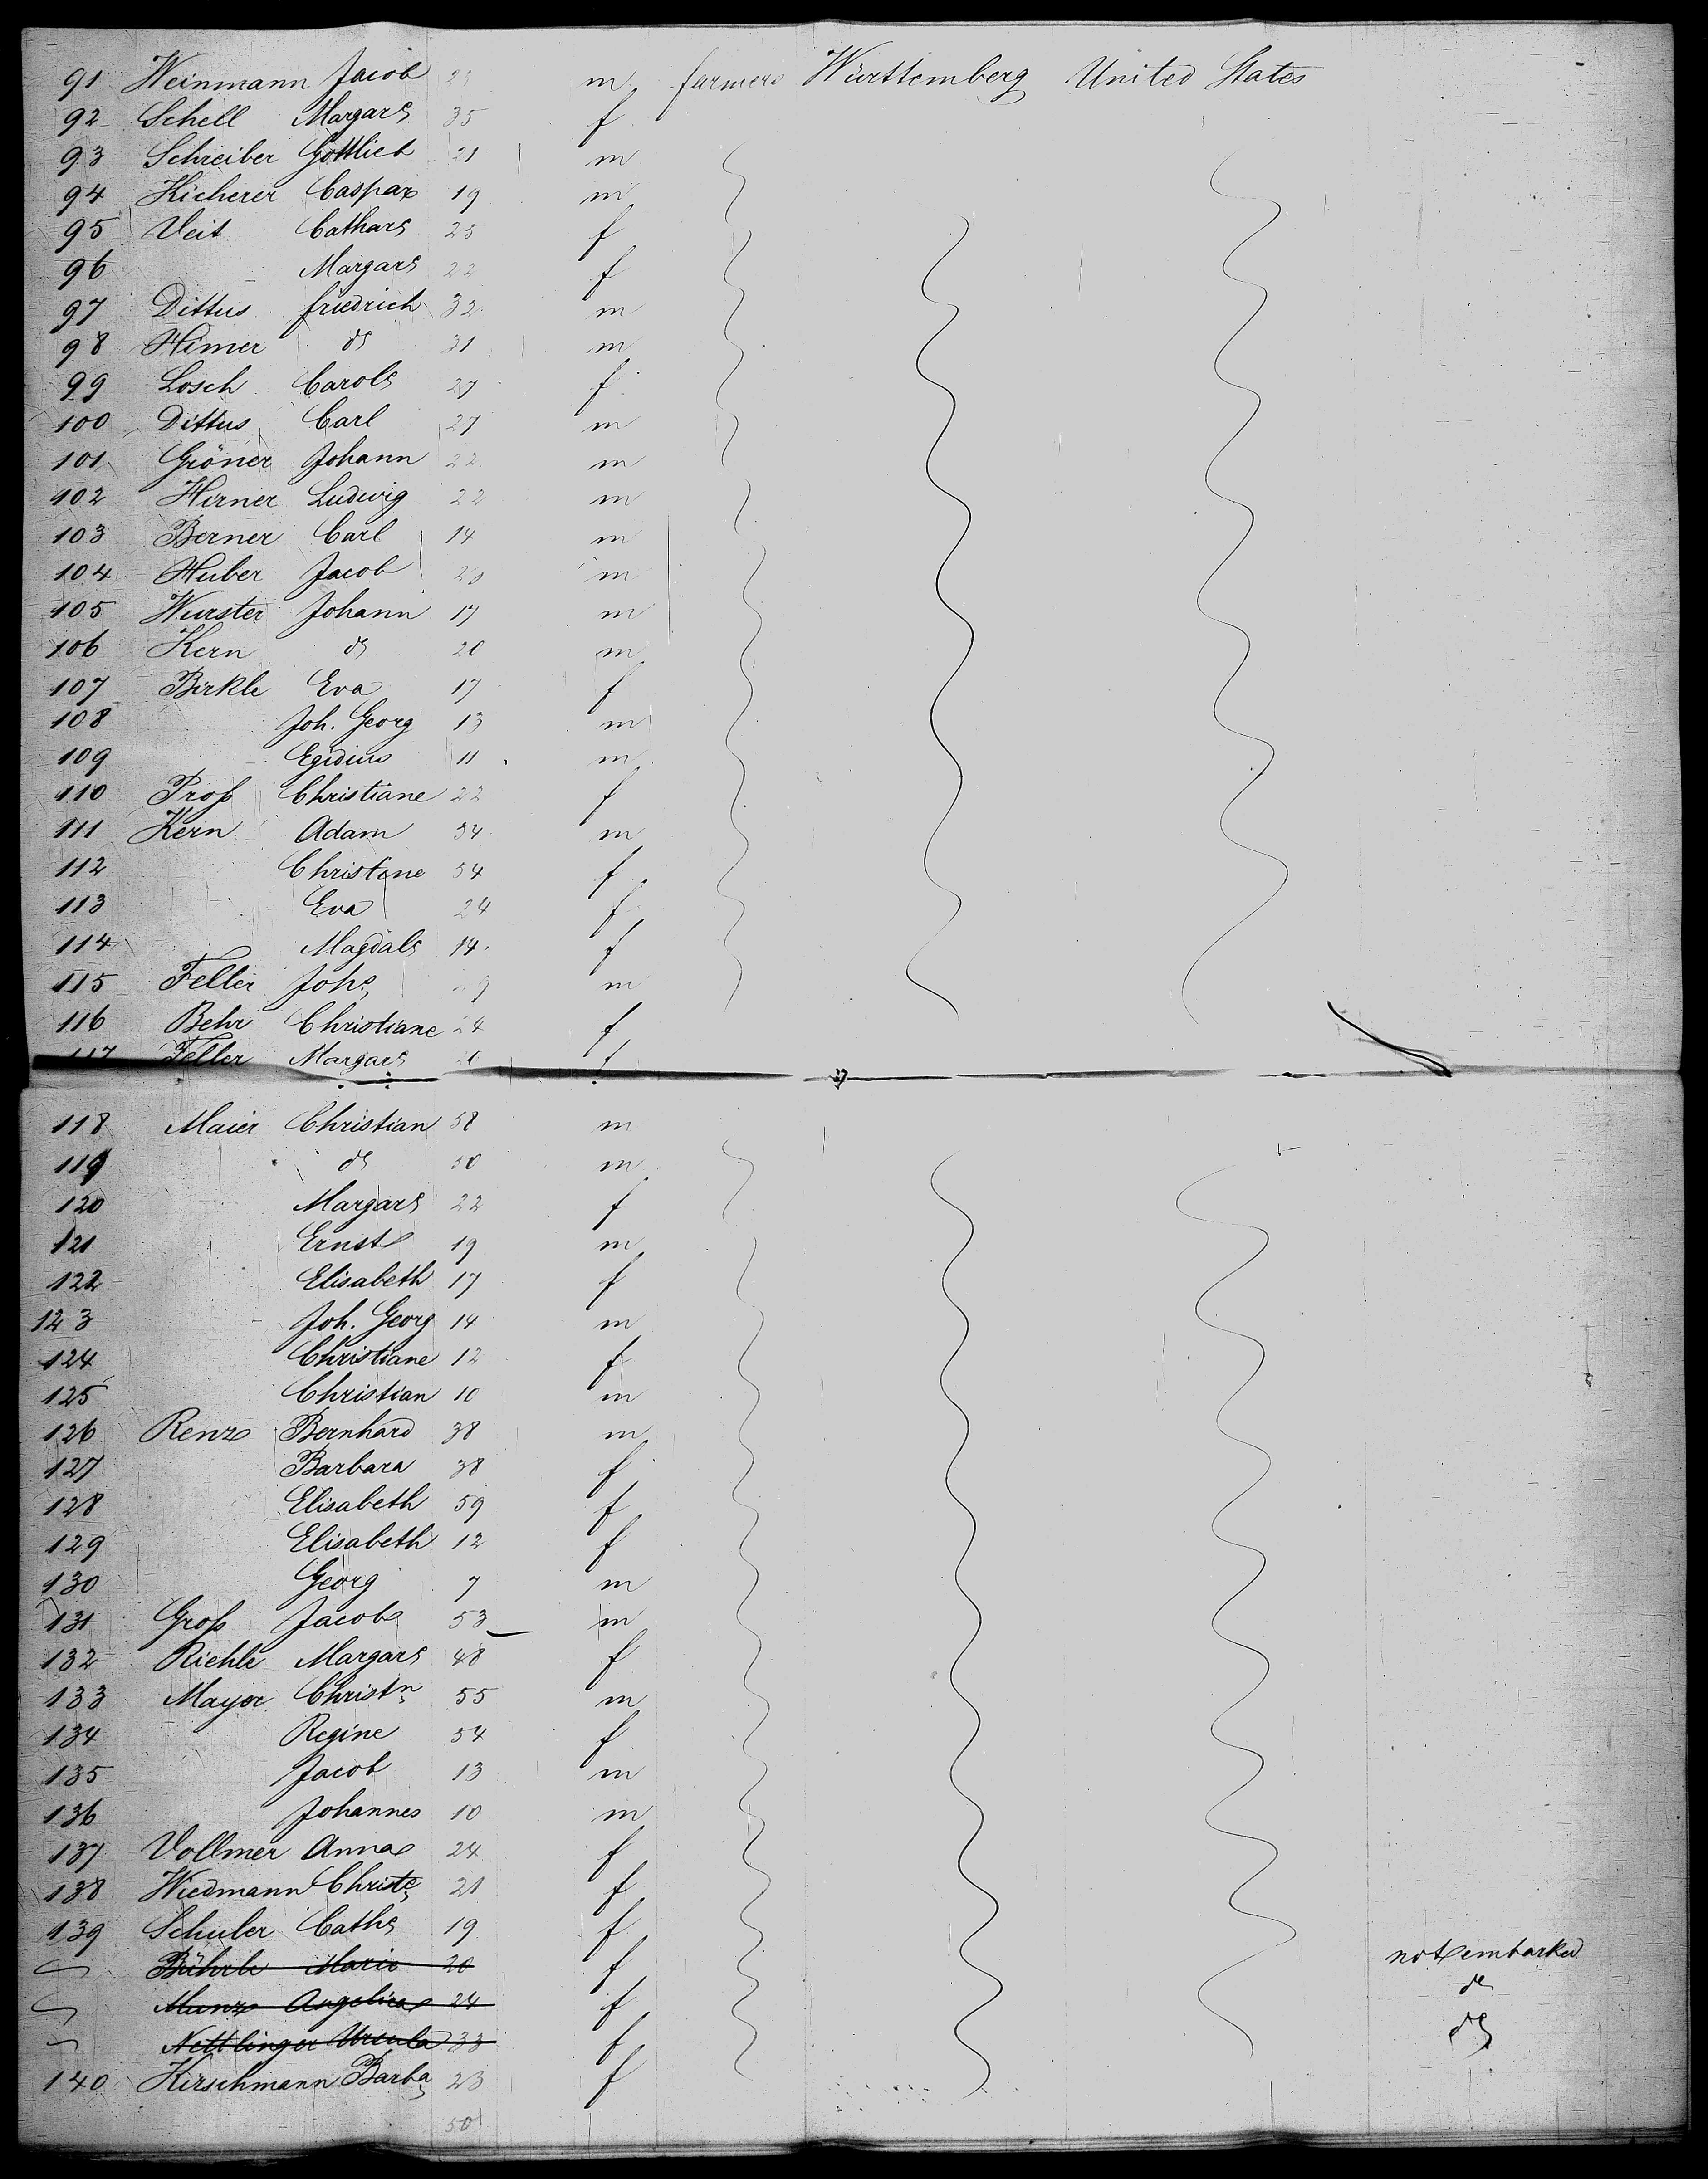 91 Weinmann Jacob m farmers Württemberg United States
92 Schell Margars 35 f
93 Schreiber Gottlieb 21 m
94 Kicherer Caspar 19 m
95 Veit Cathars 25 f
96 Margars 22 f
97 Dittus friedrich 32 m
98 Hirner ds 31 m
99 Losch Carols 27 f
100 Dittus Carl 27 m
101 Gröner Johann 22 m
102 Hirner Ludwig 22 m
103 Berner Carl 14 m
104 Huber Jacob 20 m
105 Wurster Johann 17 m
106 Kern ds 20 m
107 Birkle Eva 17 f
108 Joh. Georg 13 m
109 Egidius 11 m
110 Proß Christiane 22 f
111 Kern Adam 54 m
112 Christine 54 f
113 Eva 24 f
114 Magdals 14 f
115 Feller Johs m
116 Behr Christiane 24 f
117 Feller Margars f
118 Maier Christian 58 m
119 ds 50 m
120 Margars 22 f
121 Ernst 19 m
122 Elisabeth 17 f
123 Joh. Georg 14 m
124 Christiane 12 f
125 Christian 10 m
126 Renz Bernhard 38 m
127 Barbara 38 f
128 Elisabeth 59 f
129 Elisabeth 12 f
130 Georg 7 m
131 Groß Jacob 53 m
132 Riehle Margars 48 f
133 Mayer Christn 55 m
134 Regine 54 f
135 Jacob 13 m
136 Johannes 10 m
137 Vollmer Anna 24 f
138 Wiedmann Christe 21 f
139 Schuler Caths 19 f
Bührle Marie 20 f not embarked
Munz Angelica 24 f ds
Nettlinger Ursula 33 f ds
140 Kirschmann Barba 23 f
50